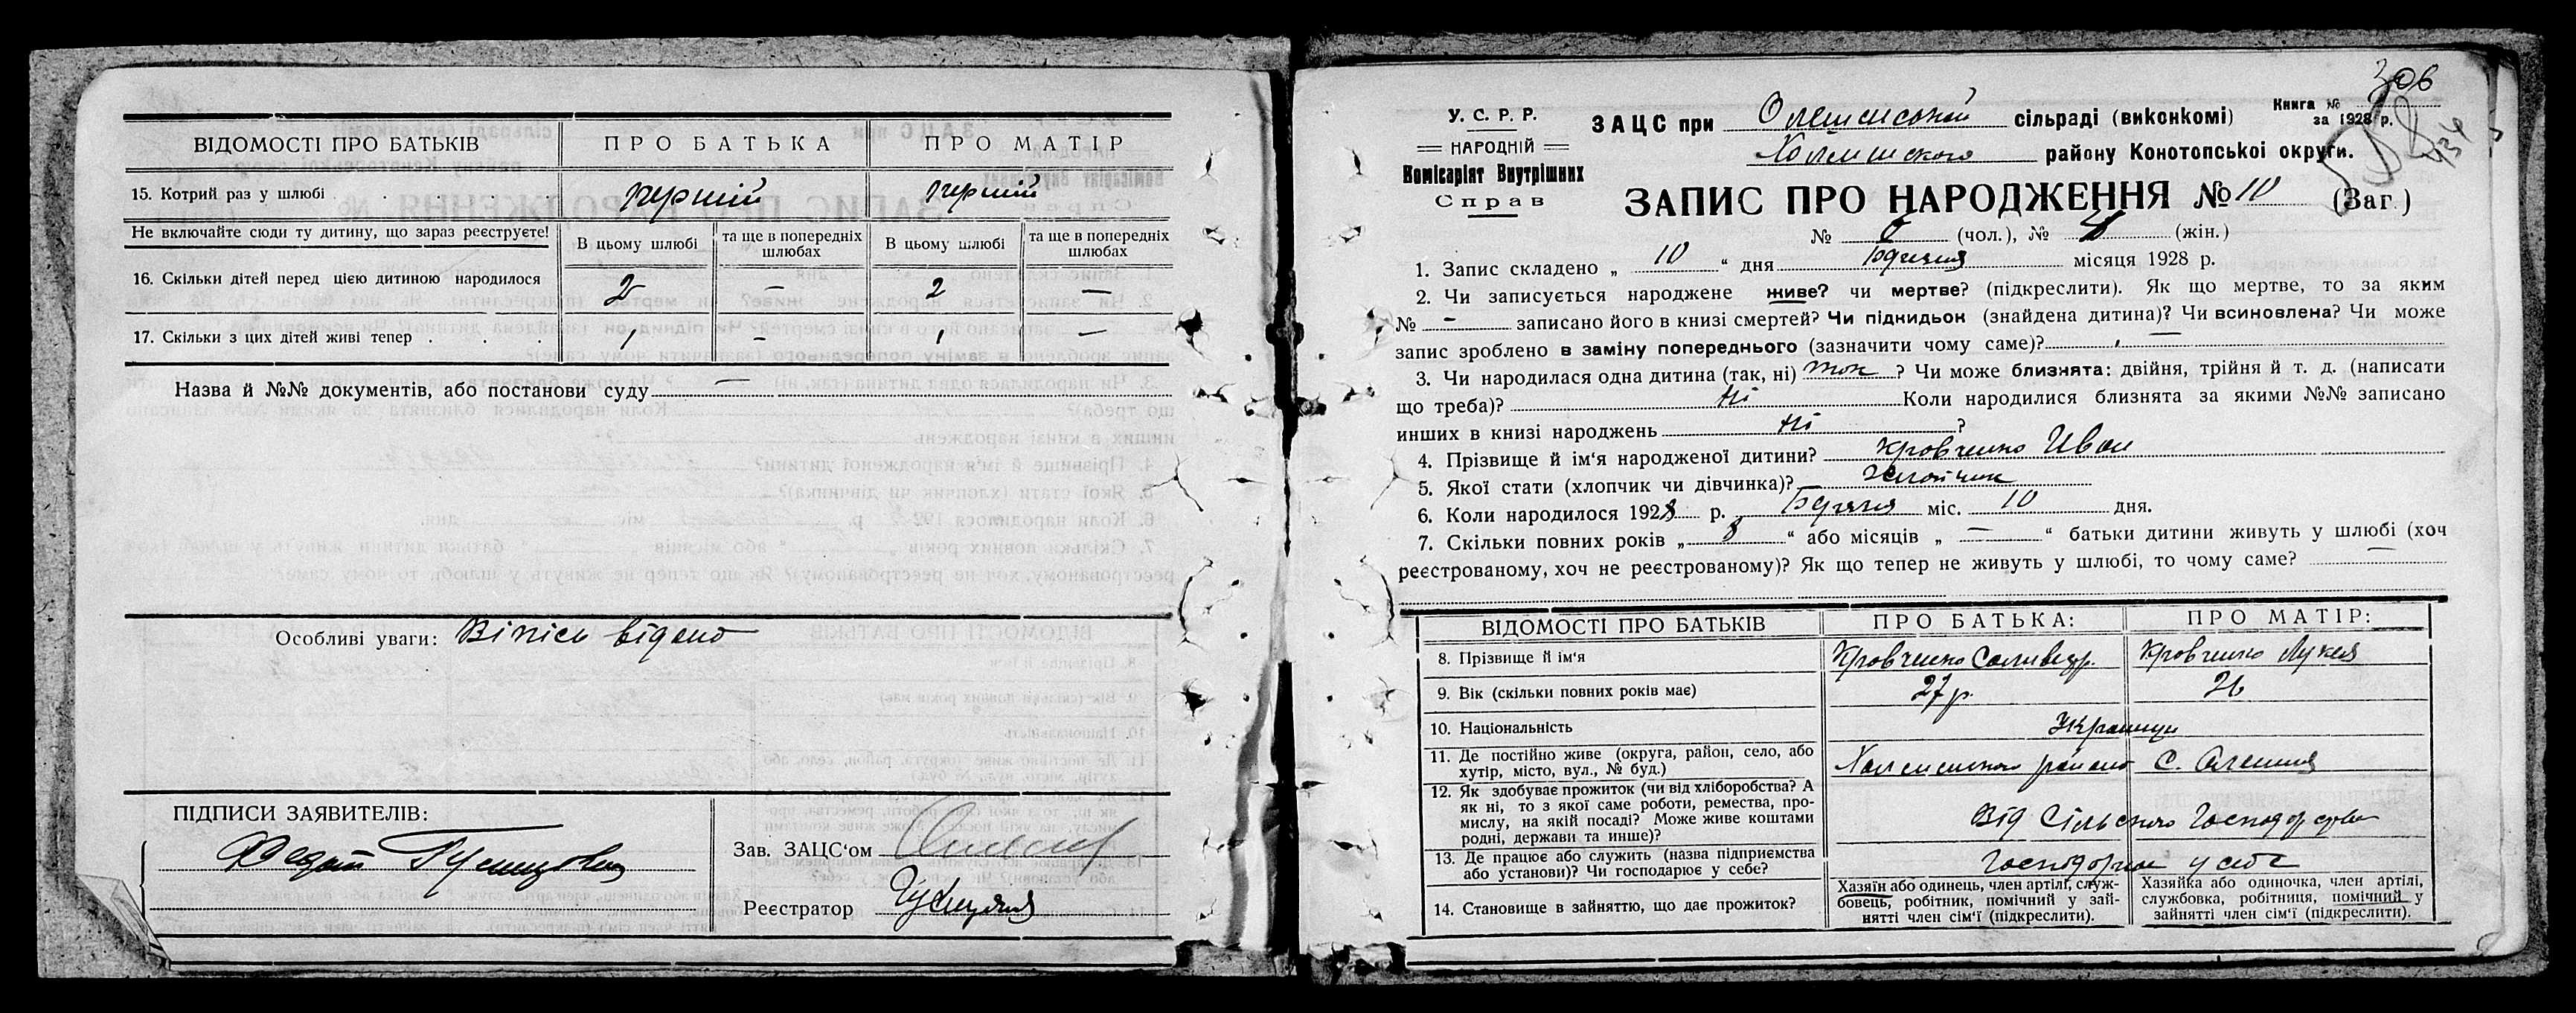 ВІДОМОСТІ ПРО БАТЬКІВ ПРО БАТЬКА ПРО МАТІР
15. Котрий раз у шлюбі . . . першій першій
Не включайте сюди ту дитину, що зараз реєструєте!
В цьому шлюбі та ще в попередніх шлюбах В цьому шлюбі та ще в попередніх шлюбах
16. Скільки дітей перед цією дитиною народилося 2 — 2 —
17. Скільки з цих дітей живі тепер . . . 1 – 1 —
Назва й №№ документів, або постанови суду —
Особливі уваги: Віпісь відано
ПІДПИСИ ЗАЯВИТЕЛІВ:
Зав. ЗАЦС‘ом
Реєстратор
306
У. С. Р. Р.
НАРОДНІЙ
Комісаріят Внутрішних
Справ
ЗАЦС при сільраді (виконкомі)
Книга №
за 1928 р.
434
Холмиского району Конотопської округи.
ЗАПИС ПРО НАРОДЖЕННЯ № 10 (Заг.)
№ 6 (чол.), № (жін.)
1. Запис складено „ 10 “ дня місяця 1928 р.
2. Чи записується народжене живе? чи мертве? (підкреслити). Як що мертве, то за яким
№ – записано його в книзі смертей? Чи підкидьок (знайдена дитина)? Чи всиновлена? Чи може
запис зроблено в заміну попереднього (зазначити чому саме)? —
3. Чи народилася одна дитина (так, ні) так ? Чи може близнята: двійня, трійня й т. д. (написати
що треба)? ні Коли народилися близнята за якими №№ записано
инших в книзі народжень ні ?
4. Прізвище й ім‘я народженої дитини? Кровченко Иван
5. Якої стати (хлопчик чи дівчинка)? Хлопчик
6. Коли народилося 1928 р. міс. 10 дня.
7. Скільки повних років „ 8 “ або місяців „ — “ батьки дитини живуть у шлюбі (хоч
реєстрованому, хоч не реєстрованому)? Як що тепер не живуть у шлюбі, то чому саме? —
ВІДОМОСТІ ПРО БАТЬКІВ ПРО БАТЬКА: ПРО МАТІР:
8. Прізвище й ім‘я Кровченко Кровченко Лукея
9. Вік (скільки повних років має) 27 р. 26
10. Національність Українци
11. Де постійно живе (округа, район, село, або
хутір, місто, вул., № буд.) Холмиского району С. Олешня
12. Як здобуває прожиток (чи від хліборобства? А
як ні, то з якої саме роботи, ремества, про-
мислу, на якій посаді? Може живе коштами
родні, держави та инше)? Від Сільского Господорства
13. Де працює або служить (назва підприємства
або установи)? Чи господарює у себе? у себе
14. Становище в зайняттю, що дає прожиток?
Хазяїн або одинець, член артілі, служ-
бовець, робітник, помічний у зай-
нятті член сім‘ї (підкреслити).
Хазяйка або одиночка, член артілі,
службовка, робітниця, помічний у
зайнятті член сім‘ї (підкреслити).